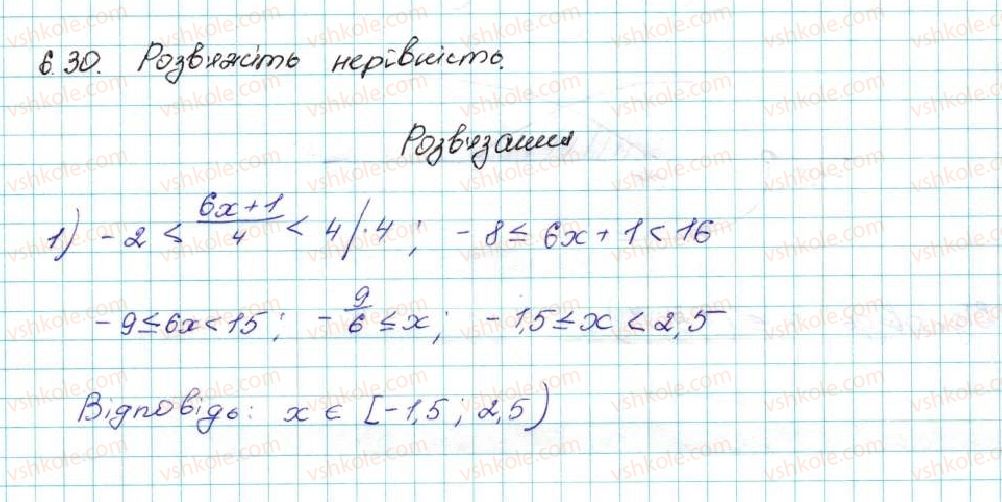 6.30. Розв'яжіть нерівність.
Розв'язання
1) -2 ≤ \frac{6x+1}{4} < 4 /·4 ; -8 ≤ 6x + 1 < 16
-9 ≤ 6x < 15 ; -\frac{9}{6} ≤ x ; -1,5 ≤ x < 2,5
Відповідь: x ∈ [-1,5 ; 2,5)